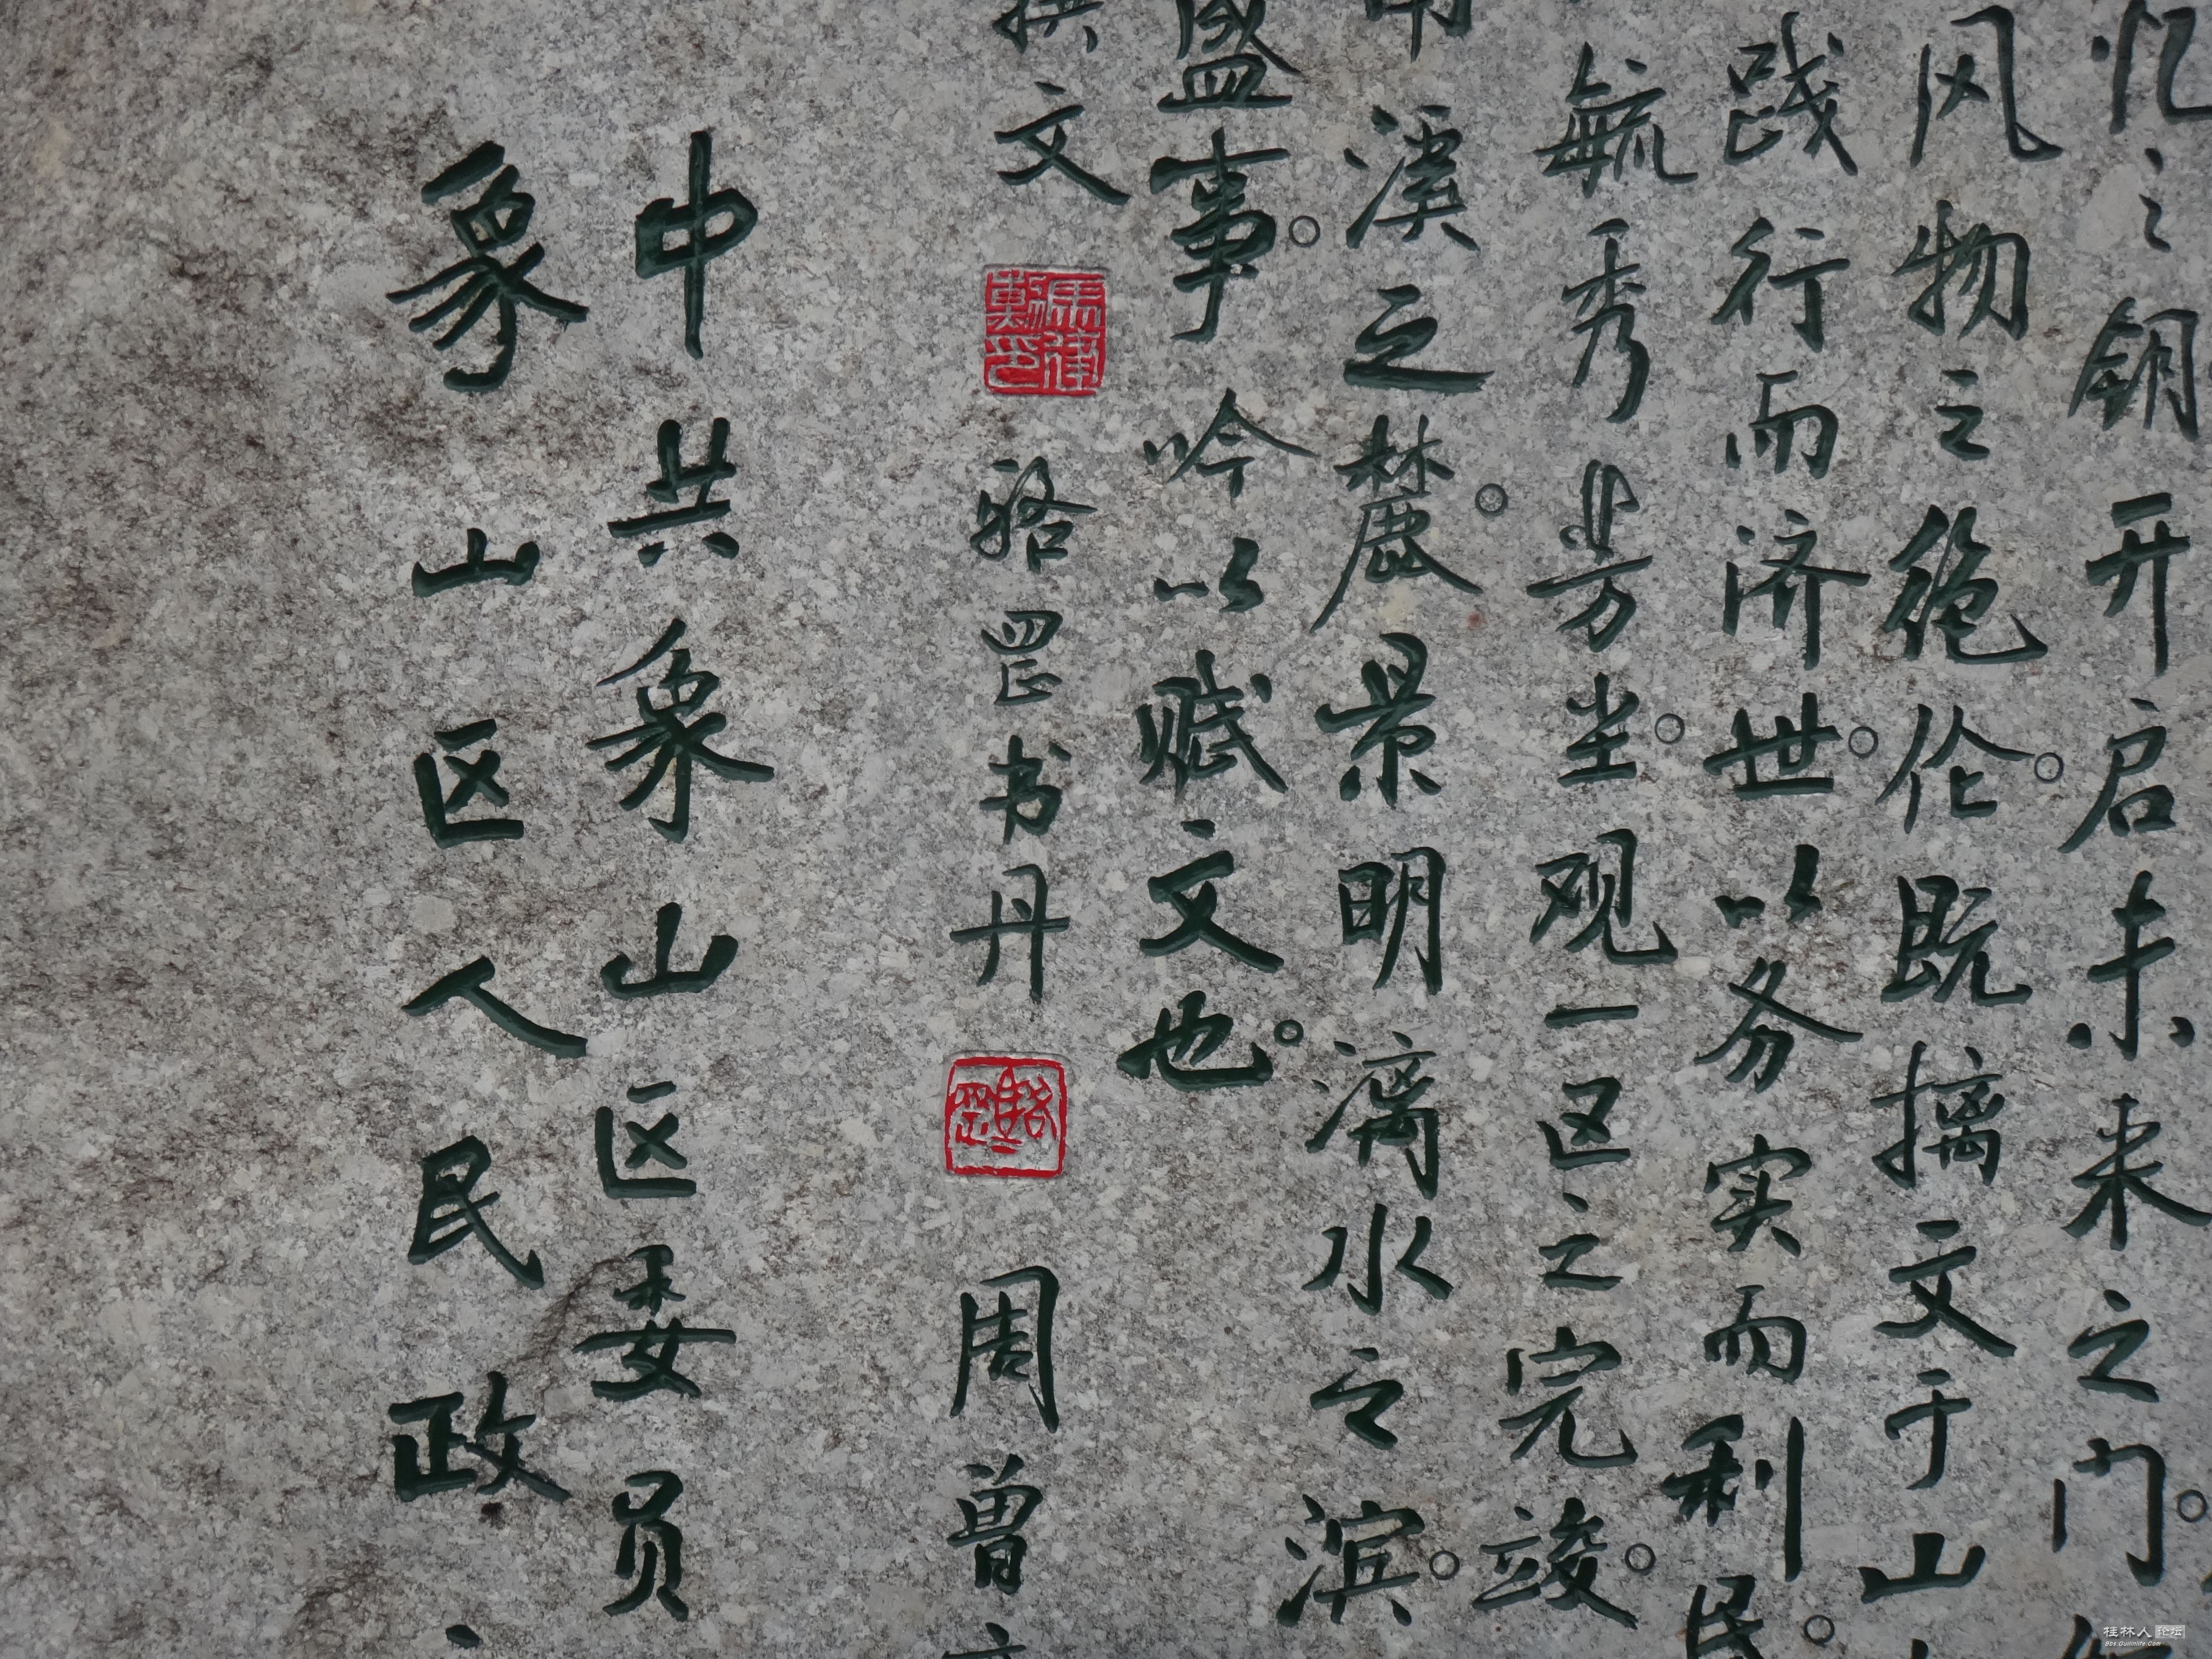 忆之钥开启未来之门。
风物之绝伦。既摛文于山
践行而济世。以务实而利民。
毓秀毕芳尘。观一区之完竣。
溪之麓。景明漓水之滨。
盛事。吟以赋文也。
撰文 骆罡书丹 周曾
中共象山区委员
象山区人民政
桂林人论坛
Bbs.Guilinlife.Com